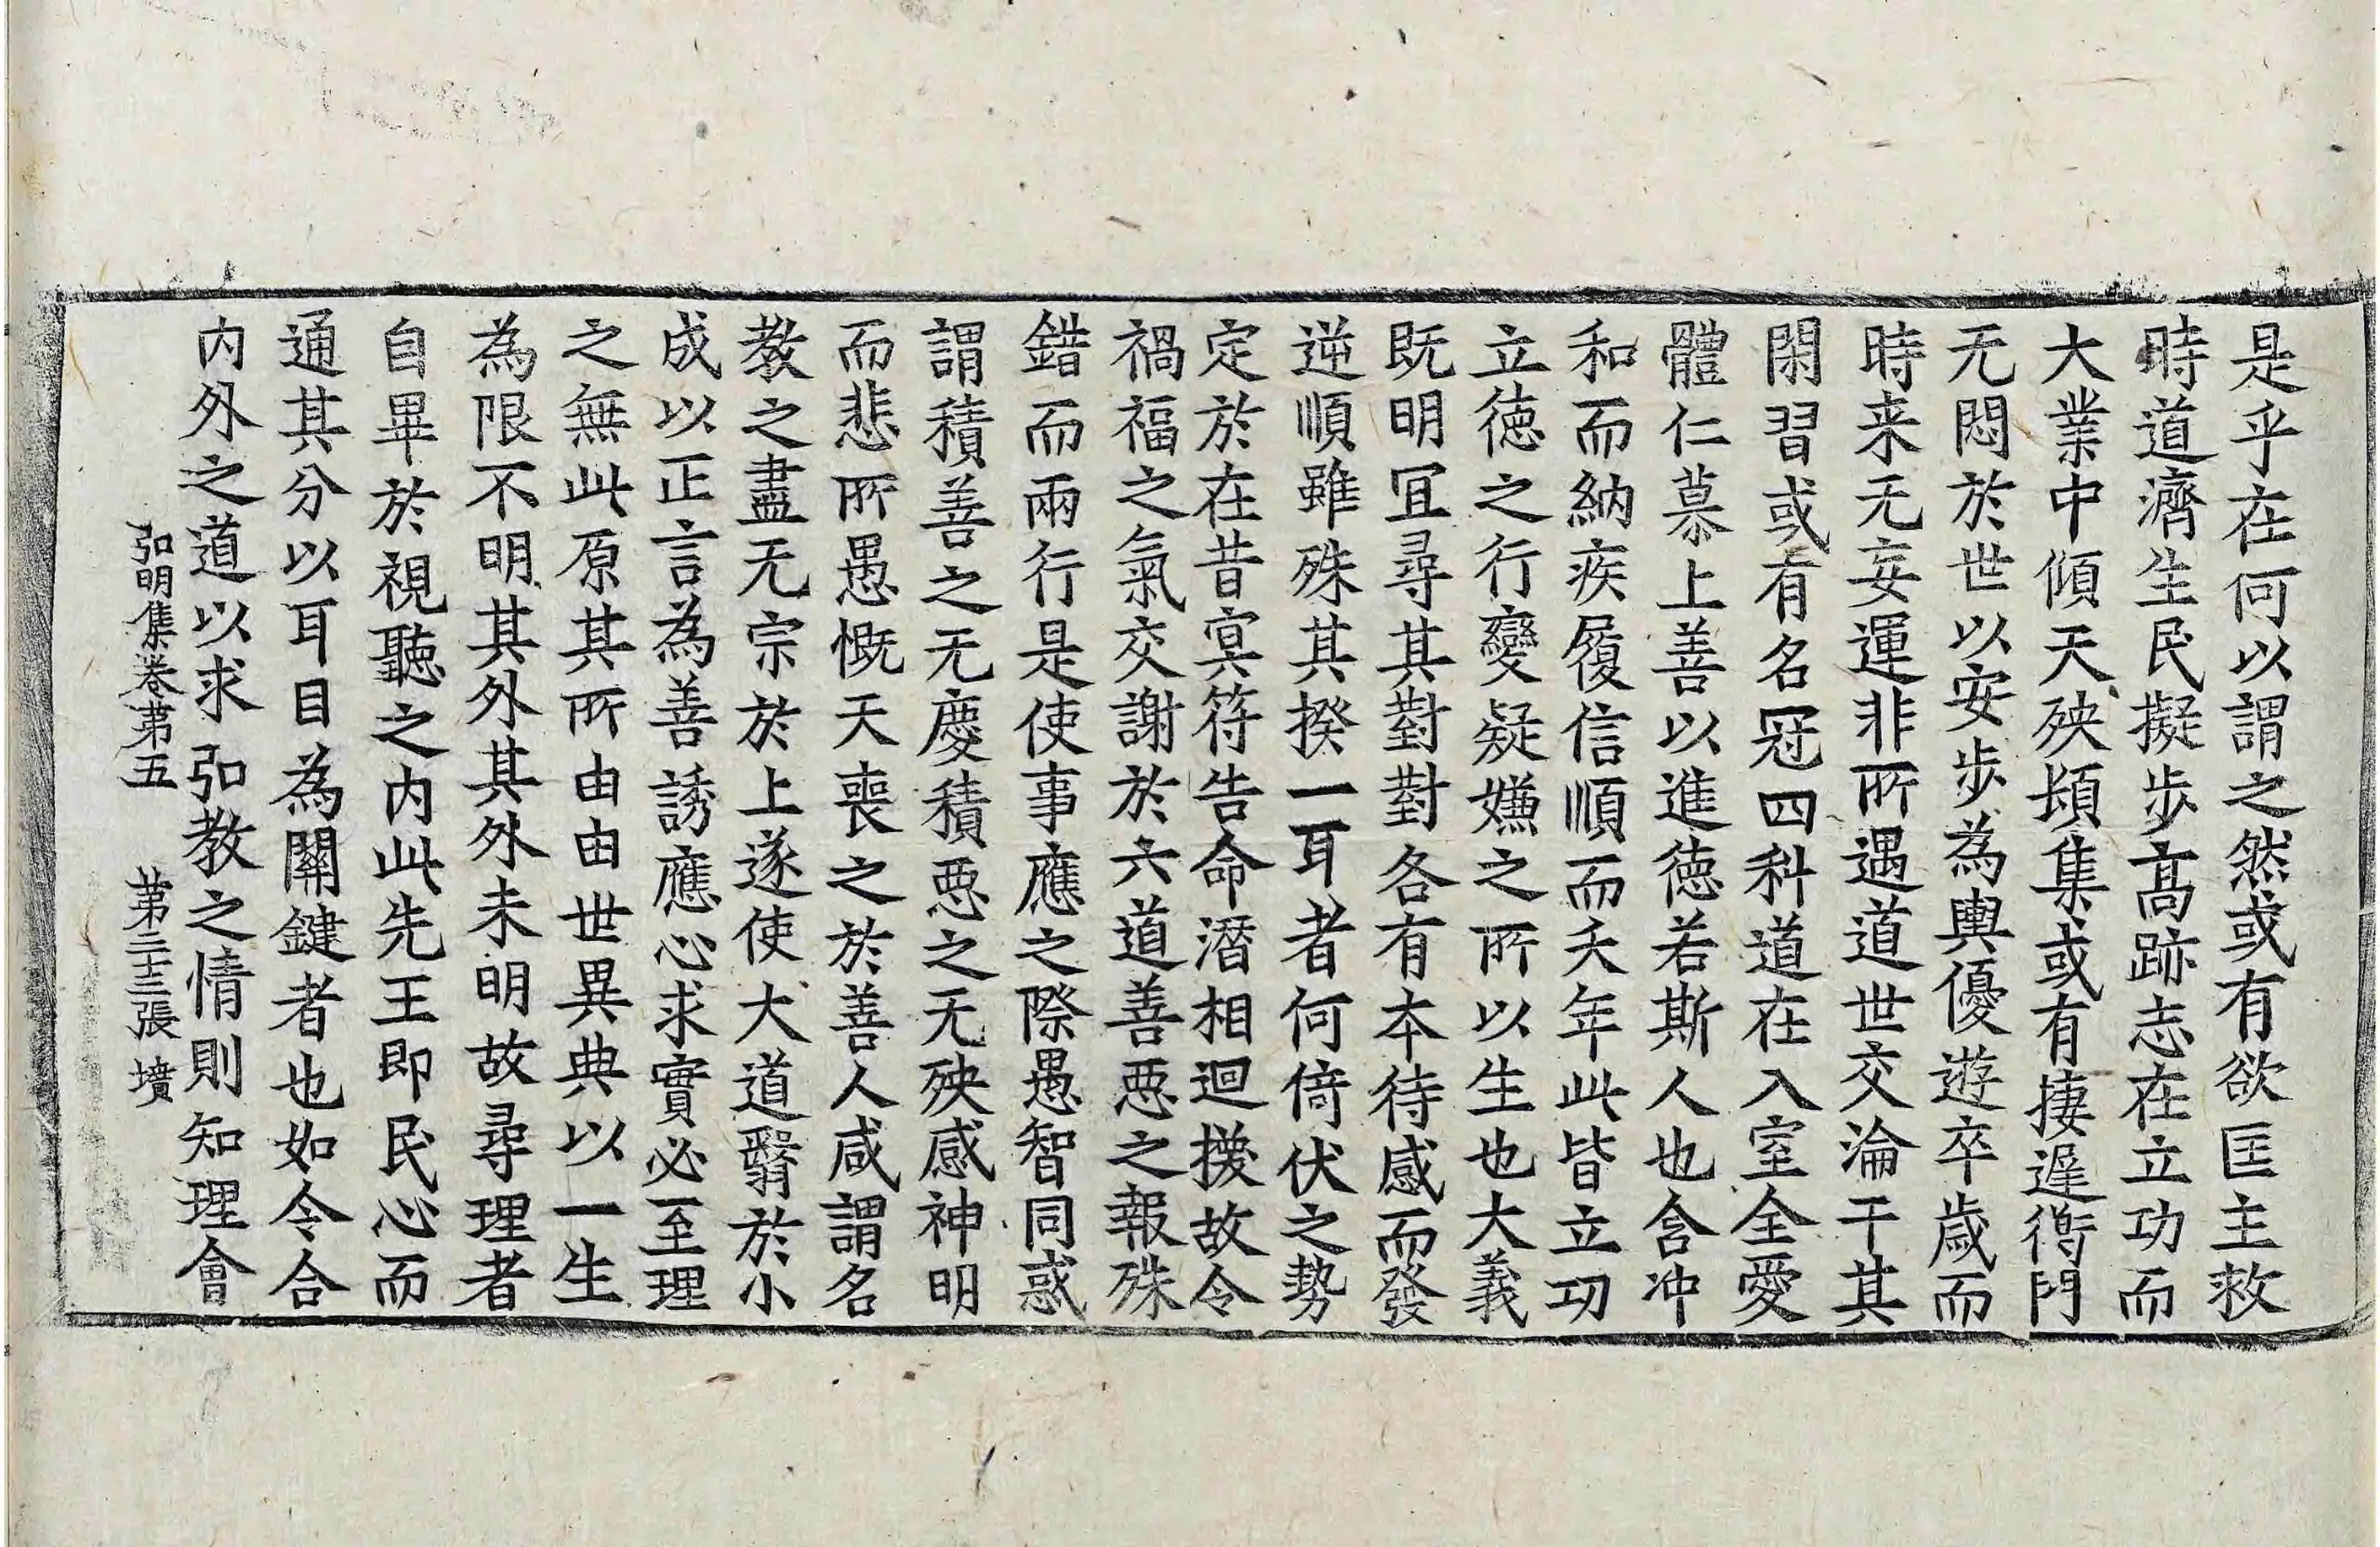 是乎在何以謂之然或有欲匡主救
時道濟生民擬步髙跡志在立功而
大業中傾天殃頓集或有捿遲衡門
无悶於世以安步為輿優遊卒歳而
時来无妄運非所遇道世交淪干其
閑習或有名冠四科道在入室全愛
體仁慕上善以進徳若斯人也含冲
和而納疾履信順而夭年此皆立功
立徳之行變疑嫌之所以生也大義
既明冝尋其對對各有本待感而發
逆順雖殊其揆一耳者何倚伏之勢
定於在昔㝠符告命潛相迴援故令
禍福之氣交謝於六道善惡之報殊
錯而兩行是使事應之際愚智同惑
謂積善之无慶積惡之无殃感神明
而悲所愚慨天喪之於善人咸謂名
教之盡无宗於上遂使大道翳於小
成以正言為善誘應心求實必至理
之無此原其所由由世異典以一生
為限不明其外其外未明故尋理者
自畢於視聽之内此先王即民心而
通其分以耳目為關鍵者也如令合
内外之道以求弘教之情則知理會
弘明集卷第五 第二十三張 墳